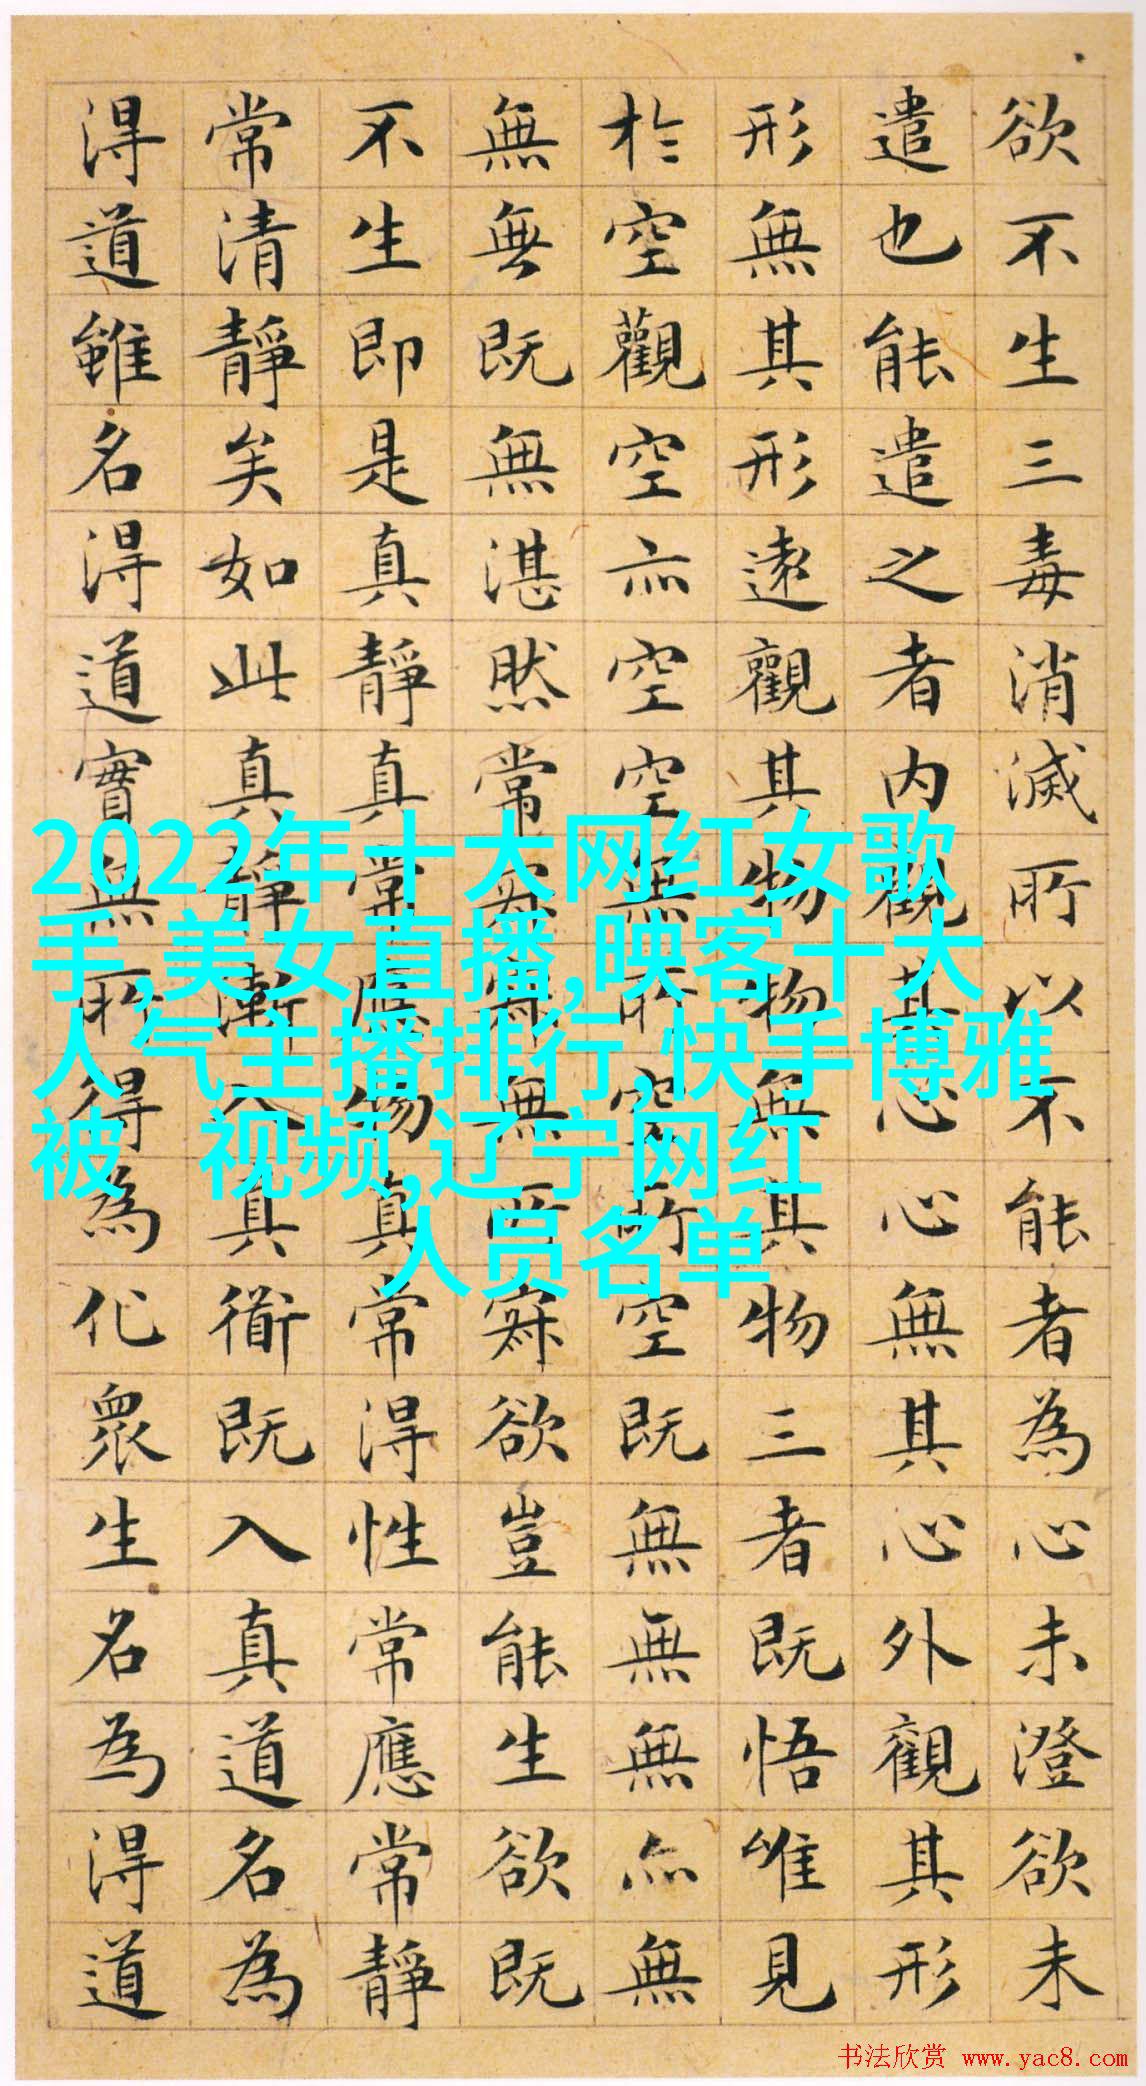 欲不生三毒消滅所以不能者為心未澄欲未
遣也能遣之者内觀其心心無其心外觀其形
形無其形遠觀其物物無其物三者既悟唯見
於空觀空亦空空無所空所空既無無無亦無
無無既無湛然常寂寂無所寂欲豈能生欲既
不生即是真靜真常應物真常得性常應常靜
常清靜矣如此真靜漸入真衜既入真道名為
得道雖名得道實無所得為化眾生名為得道
2022年十大网红女歌
手,美女直播,映客十大
人气主播排行,快手博雅
被 视频,辽宁网红
人员名单
书法欣赏 www.yac8.com